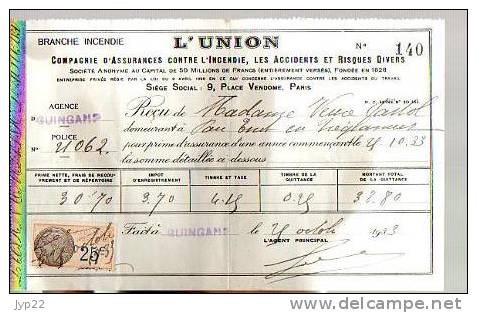 BRANCHE INCENDIE
L'UNION
N° 140
COMPAGNIE D'ASSURANCES CONTRE L'INCENDIE, LES ACCIDENTS ET RISQUES DIVERS
SOCIÉTÉ ANONYME AU CAPITAL DE 50 MILLIONS DE FRANCS (ENTIÈREMENT VERSÉS), FONDÉE EN 1828
ENTREPRISE PRIVÉE RÉGIE PAR LA LOI DU 9 AVRIL 1898 EN CE QUI CONCERNE L'ASSURANCE CONTRE LES ACCIDENTS DU TRAVAIL
SIÈGE SOCIAL: 9, PLACE VENDOME, PARIS
AGENCE
D GUINGAMP
POLICE
N° 21062
Reçu de Madame Veuve
demeurant à
pour prime d'assurance d'une année commençant le 21 10.33
la somme détaillée ci-dessous
PRIME NETTE, FRAIS DE RECOUVREMENT ET DE RÉPERTOIRE
IMPOT D'ENREGISTREMENT
TIMBRE ET TAXE
TIMBRE DE LA QUITTANCE
MONTANT TOTAL DE LA QUITTANCE
30.70
3.70
Fait à GUINGAMP le 21 octob 1933
L'AGENT PRINCIPAL
25c
jyp22
http://www.delcampe.net